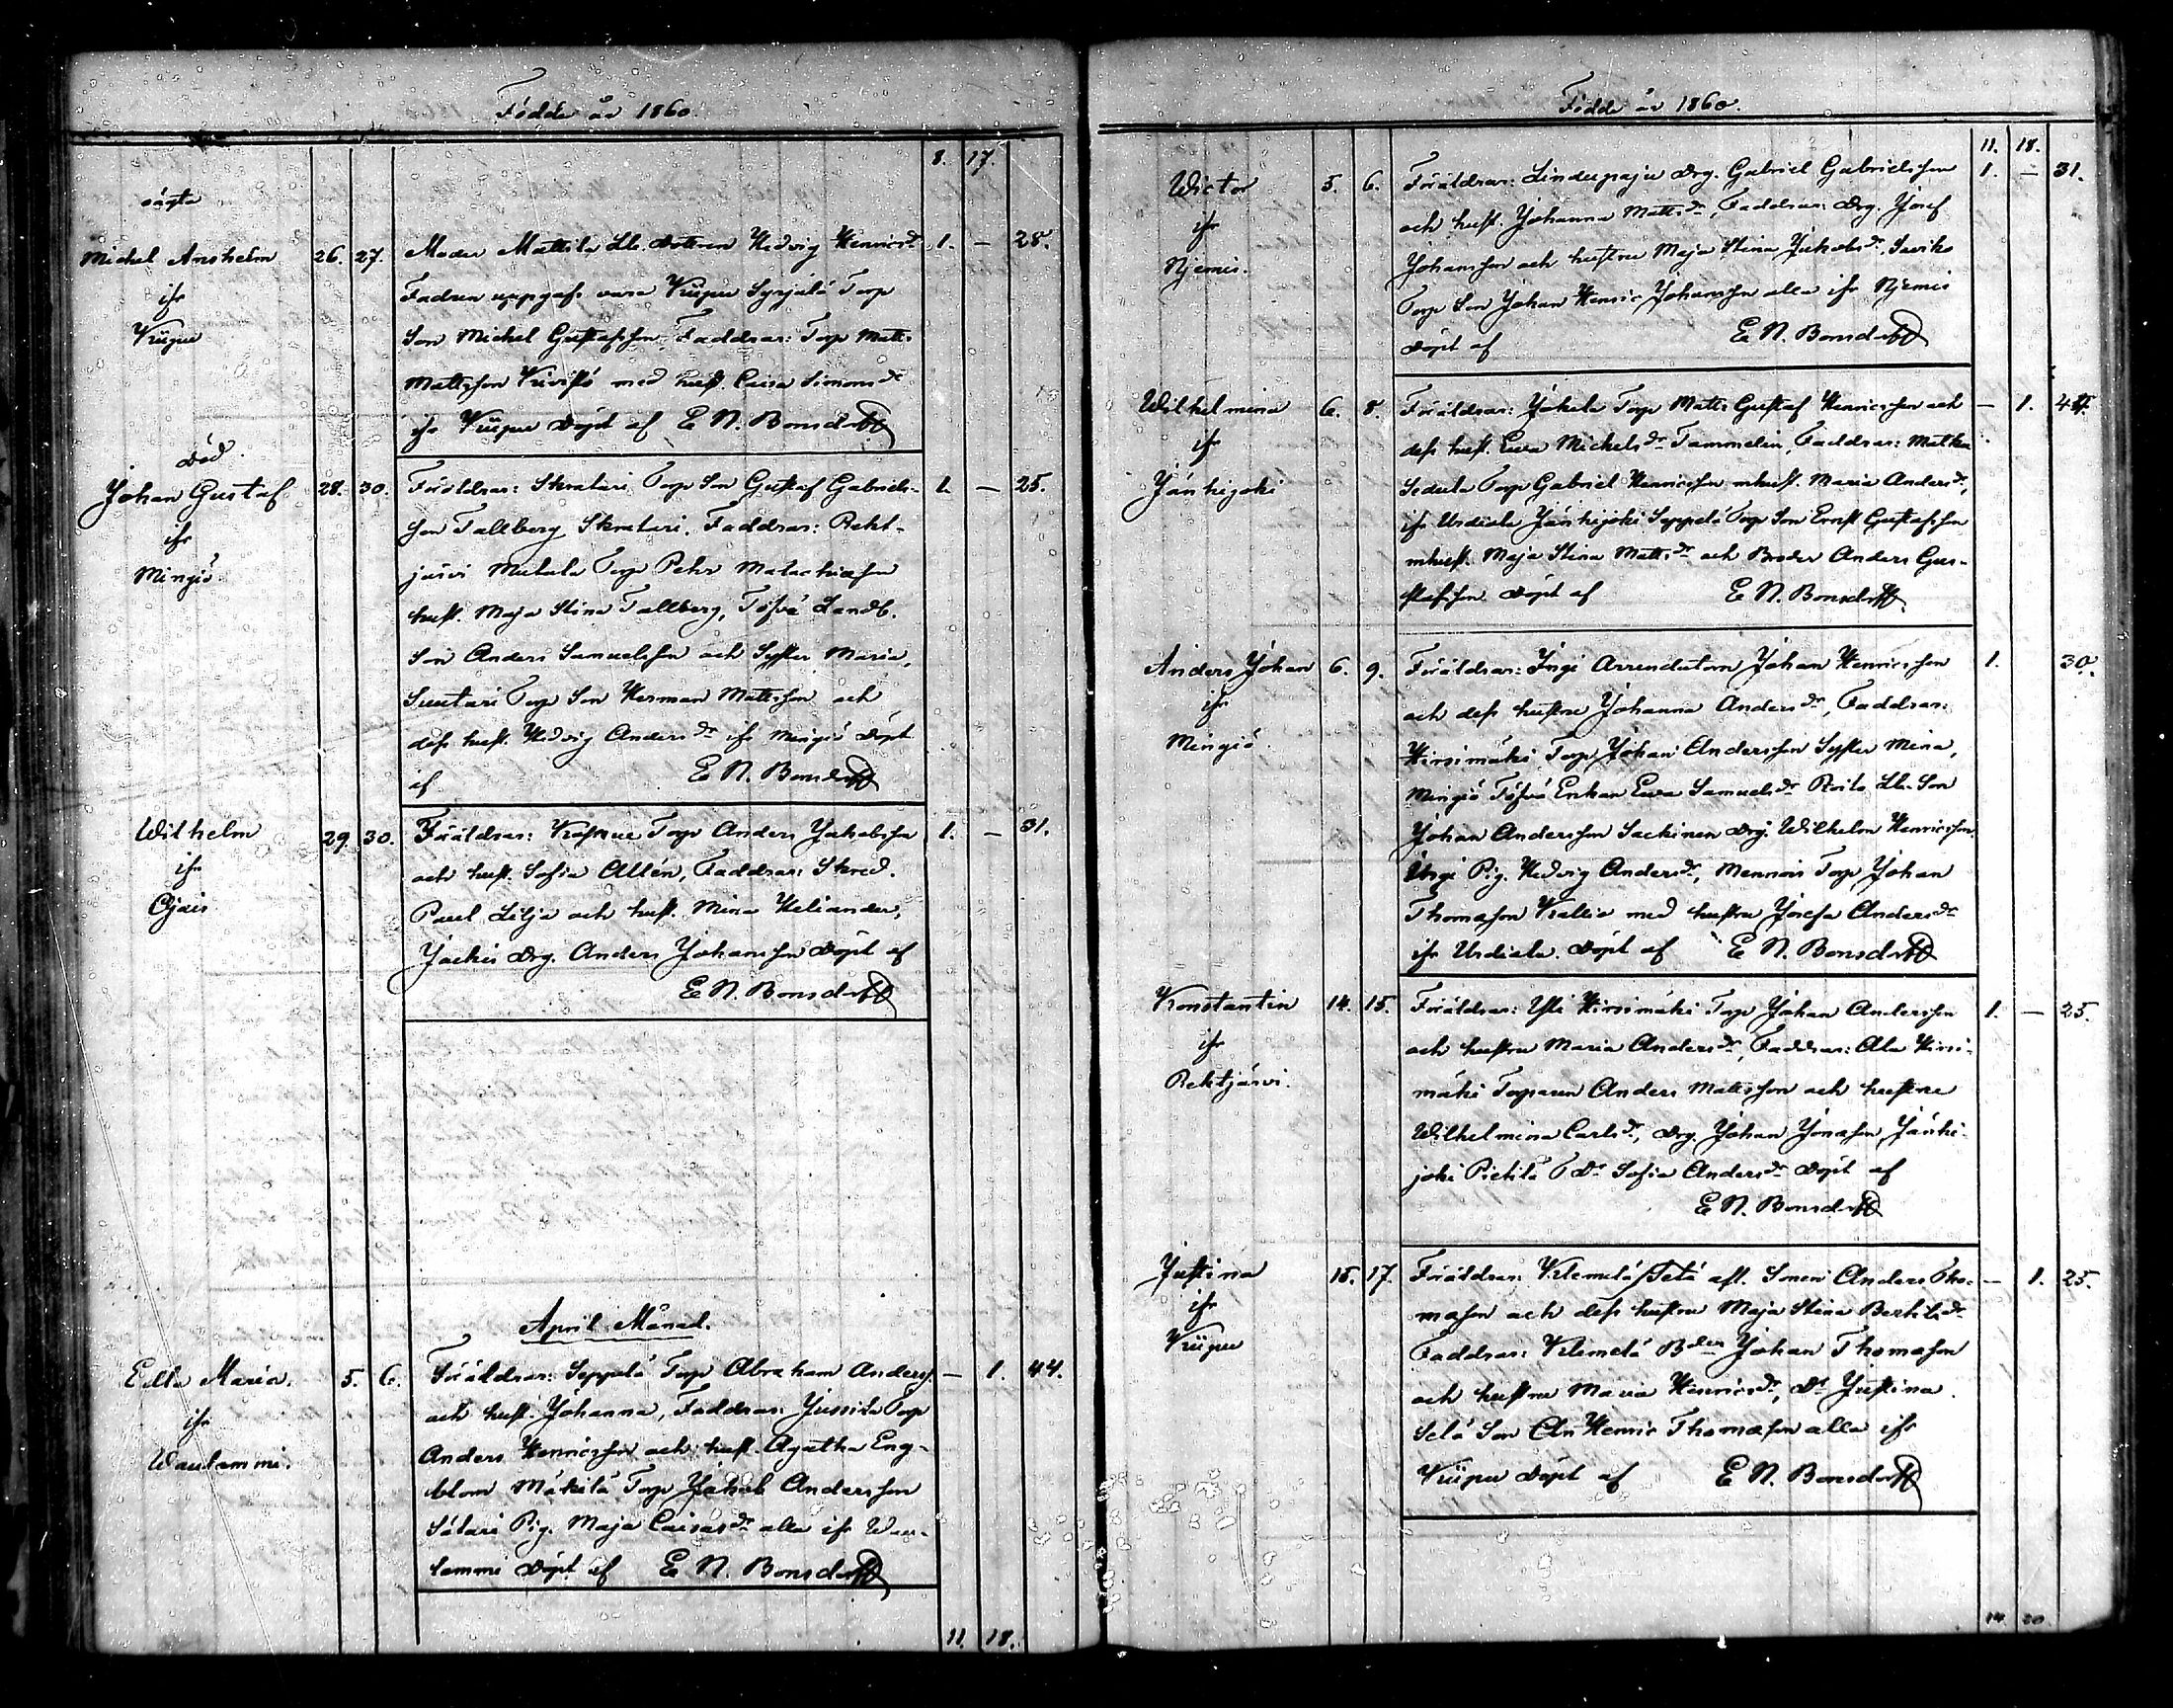 Födde år 1860.
8. 17.
oägta
Michel Anshelm 26. 27. Moder Mattila Ll. dottren Hedvig Henricsdr 1. — 28.
ifr Fadren uppgafs vara Kuipu Syrjälä Torp
Kuipu Son Michel Gustafsson, Faddrar: Torp Matts
Mattsson Kivistö med hust. Caisa Simonsdr
ifr Kuipu Döpt af E N. Bonsdorff
Död.
Johan Gustaf 28. 30. Föräldrar: Skratari Torp Son Gustaf Gabriels- 1. — 25.
ifr son Tallberg Skratari. Faddrar: Reht-
Mingiö järvi Mutala Torp Pehr Malachiason
hust. Maja Stina Tallberg, Töfvä Landb.
Son Anders Samuelsson och Syster Maria,
Suutari Torp Son Herman Mattsson och
dess hust. Hedvig Andersdr ifr Mingiö Döpt
af E N. Bonsdorff
Wilhelm 29. 30. Föräldrar: Torp Anders Jakobsson 1. — 31.
ifr och hust. Sofia Allén, Faddrar: Skred.
Ojais Paul Lilja och hust. Mina Heliander,
Jackis Drg. Anders Johansson Döpt af
E N. Bonsdorff
April Månad.
Edla Maria. 5. 6. Föräldrar: Seppälä Torp Abraham Anderss. — 1. 44.
ifr och hust. Johanna, Faddrar: Jussila Torp
Waulammi. Anders Henricsson och hust. Agatha Eng-
blom Mäkilä Torp Jakob Andersson
Sätari Pig. Maja Caisasdr alla ifr Wau-
lammi Döpt af E N. Bonsdorff
11. 18.
Födde år 1860.
11. 18.
Wictor 5. 6. Föräldrar: Lindupaju Drg. Gabriel Gabrielsson 1. — 31.
ifr och hust. Johanna Mattsdr, Faddrar: Drg. Josef
Njemis. Johansson och hustru Maja Stina Jakobsdr. Suriko
Torp Son Johan Henric Johansson alla ifr Njemis
Döpt af E N. Bonsdorff
Wilhelmina 6. 8. Föräldrar: Jokela Torp Matts Gustaf Henricsson och — 1. 44.
ifr dess hust. Ewa Michelsdr Tammelin, Faddrar: Matku
Jänhijoki Torp Gabriel Henricsson mhust. Maria Andersdr,
ifr Urdiala Jänhijoki Seppelä Torp Son Ernst Gustafsson
mhust. Maja Stina Mattsdr och Broder Anders Gus-
tafsson Döpt af E N. Bonsdorff
Anders Johan 6. 9. Föräldrar: Yrigi Arrendatorn Johan Henricsson 1. 30.
ifr och dess hustru Johanna Andersdr, Faddrar:
Mingiö. Hirsimäki Torp Johan Andersson Syster Mina,
Mingiö Töfvä Enkan Ewa Samuelsdr Ll. Son
Johan Andersson Sackinen Drg. Wilhelm Henricsson
Pig. Hedvig Andersdr, Mennois Torp Johan
Thomasson Kallio med hustru Josefa Andersdr
ifr Urdiala. Döpt af E N. Bonsdorff
Konstantin 14. 15. Föräldrar: Yli Hirsimäki Torp Johan Andersson 1. — 25.
ifr och hustru Maria Andersdr, Faddrar: Ala Hirsi-
Rehtjärvi. mäki Torparen Anders Mattsson och hustru
Wilhelmina Carlsdr, Drg. Johan Jonasson Jänhi-
joki Pietilä T Dr Sofia Andersdr Döpt af
E N. Bonsdorff
Justina 15. 17. Föräldrar: Klemelä Setä afl. Soneri Anders Tho- — 1. 25.
ifr masson och dess hustru Maja Stina Bertilsdr
Kuipu Faddrar: Klemelä Bden Johan Thomasson
och hustru Maria Henricsdr, Dr Justina.
Setä Son An Henric Thomasson alla ifr
Kuipu Döpt af E N. Bonsdorff
14. 20.